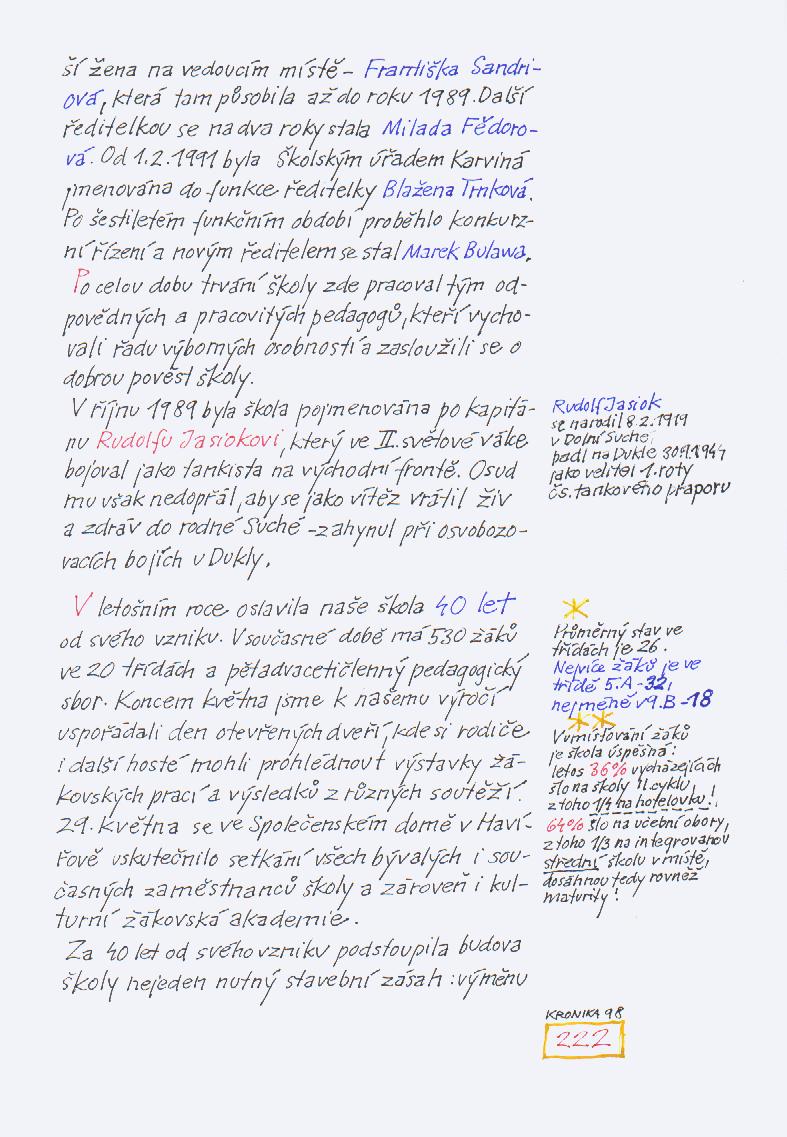 ší žena na vedoucím místě - Františka Sandri-
ová, která tam působila až do roku 1989. Další
ředitelkou se na dva roky stala Milada Fědoro-
vá. Od 1.2.1991 byla Školským úřadem Karviná
jmenována do funkce ředitelky Blažena Trnková.
Po šestiletém funkčním období proběhlo konkurz-
ní řízení a novým ředitelem se stal Marek Bulawa.
Po celou dobu trvání školy zde pracoval tým od-
povědných a pracovitých pedagogů, kteří vycho-
vali řadu výborných osobností a zasloužili se o
dobrou pověst školy.
V říjnu 1989 byla škola pojmenována po kapitá-
nu Rudolfu Jasiokovi, který ve II. světové válce
bojoval jako tankista na východní frontě. Osud
mu však nedopřál, aby se jako vítěz vrátil živ
a zdráv do rodné Suché - zahynul při osvobozo-
vacích bojích u Dukly.
Rudolf Jasiok
se narodil 8.2.1919
v Dolní Suché,
padl na Dukle 30.9.1944
jako velitel 1. roty
čs. tankového praporu
V letošním roce oslavila naše škola 40 let
od svého vzniku. V současné době má 530 žáků
ve 20 třídách a pětadvacetičlenný pedagogický
sbor. Koncem května jsme k našemu výročí
uspořádali den otevřených dveří, kde si rodiče
i další hosté mohli prohlédnout výstavky žá-
kovských prací a výsledků z různých soutěží.
29. května se ve Společenském domě v Haví-
řově uskutečnilo setkání všech bývalých i sou-
časných zaměstnanců školy a zároveň i kul-
turní žákovská akademie.
Za 40 let od svého vzniku podstoupila budova
školy nejeden nutný stavební zásah: výměnu
*
Průměrný stav ve
třídách je 26.
Nejvíce žáků je ve
třídě 5.A - 32,
nejméně v 9.B - 18
**
V umisťování žáků
je škola úspěšná:
letos 36% vycházejících
šlo na školy II. cyklu,
z toho 1/4 na hotelovku!,
64% šlo na učební obory,
z toho 1/3 na integrovanou
střední školu v místě,
dosáhnou tedy rovněž
maturity!
KRONIKA 98
222